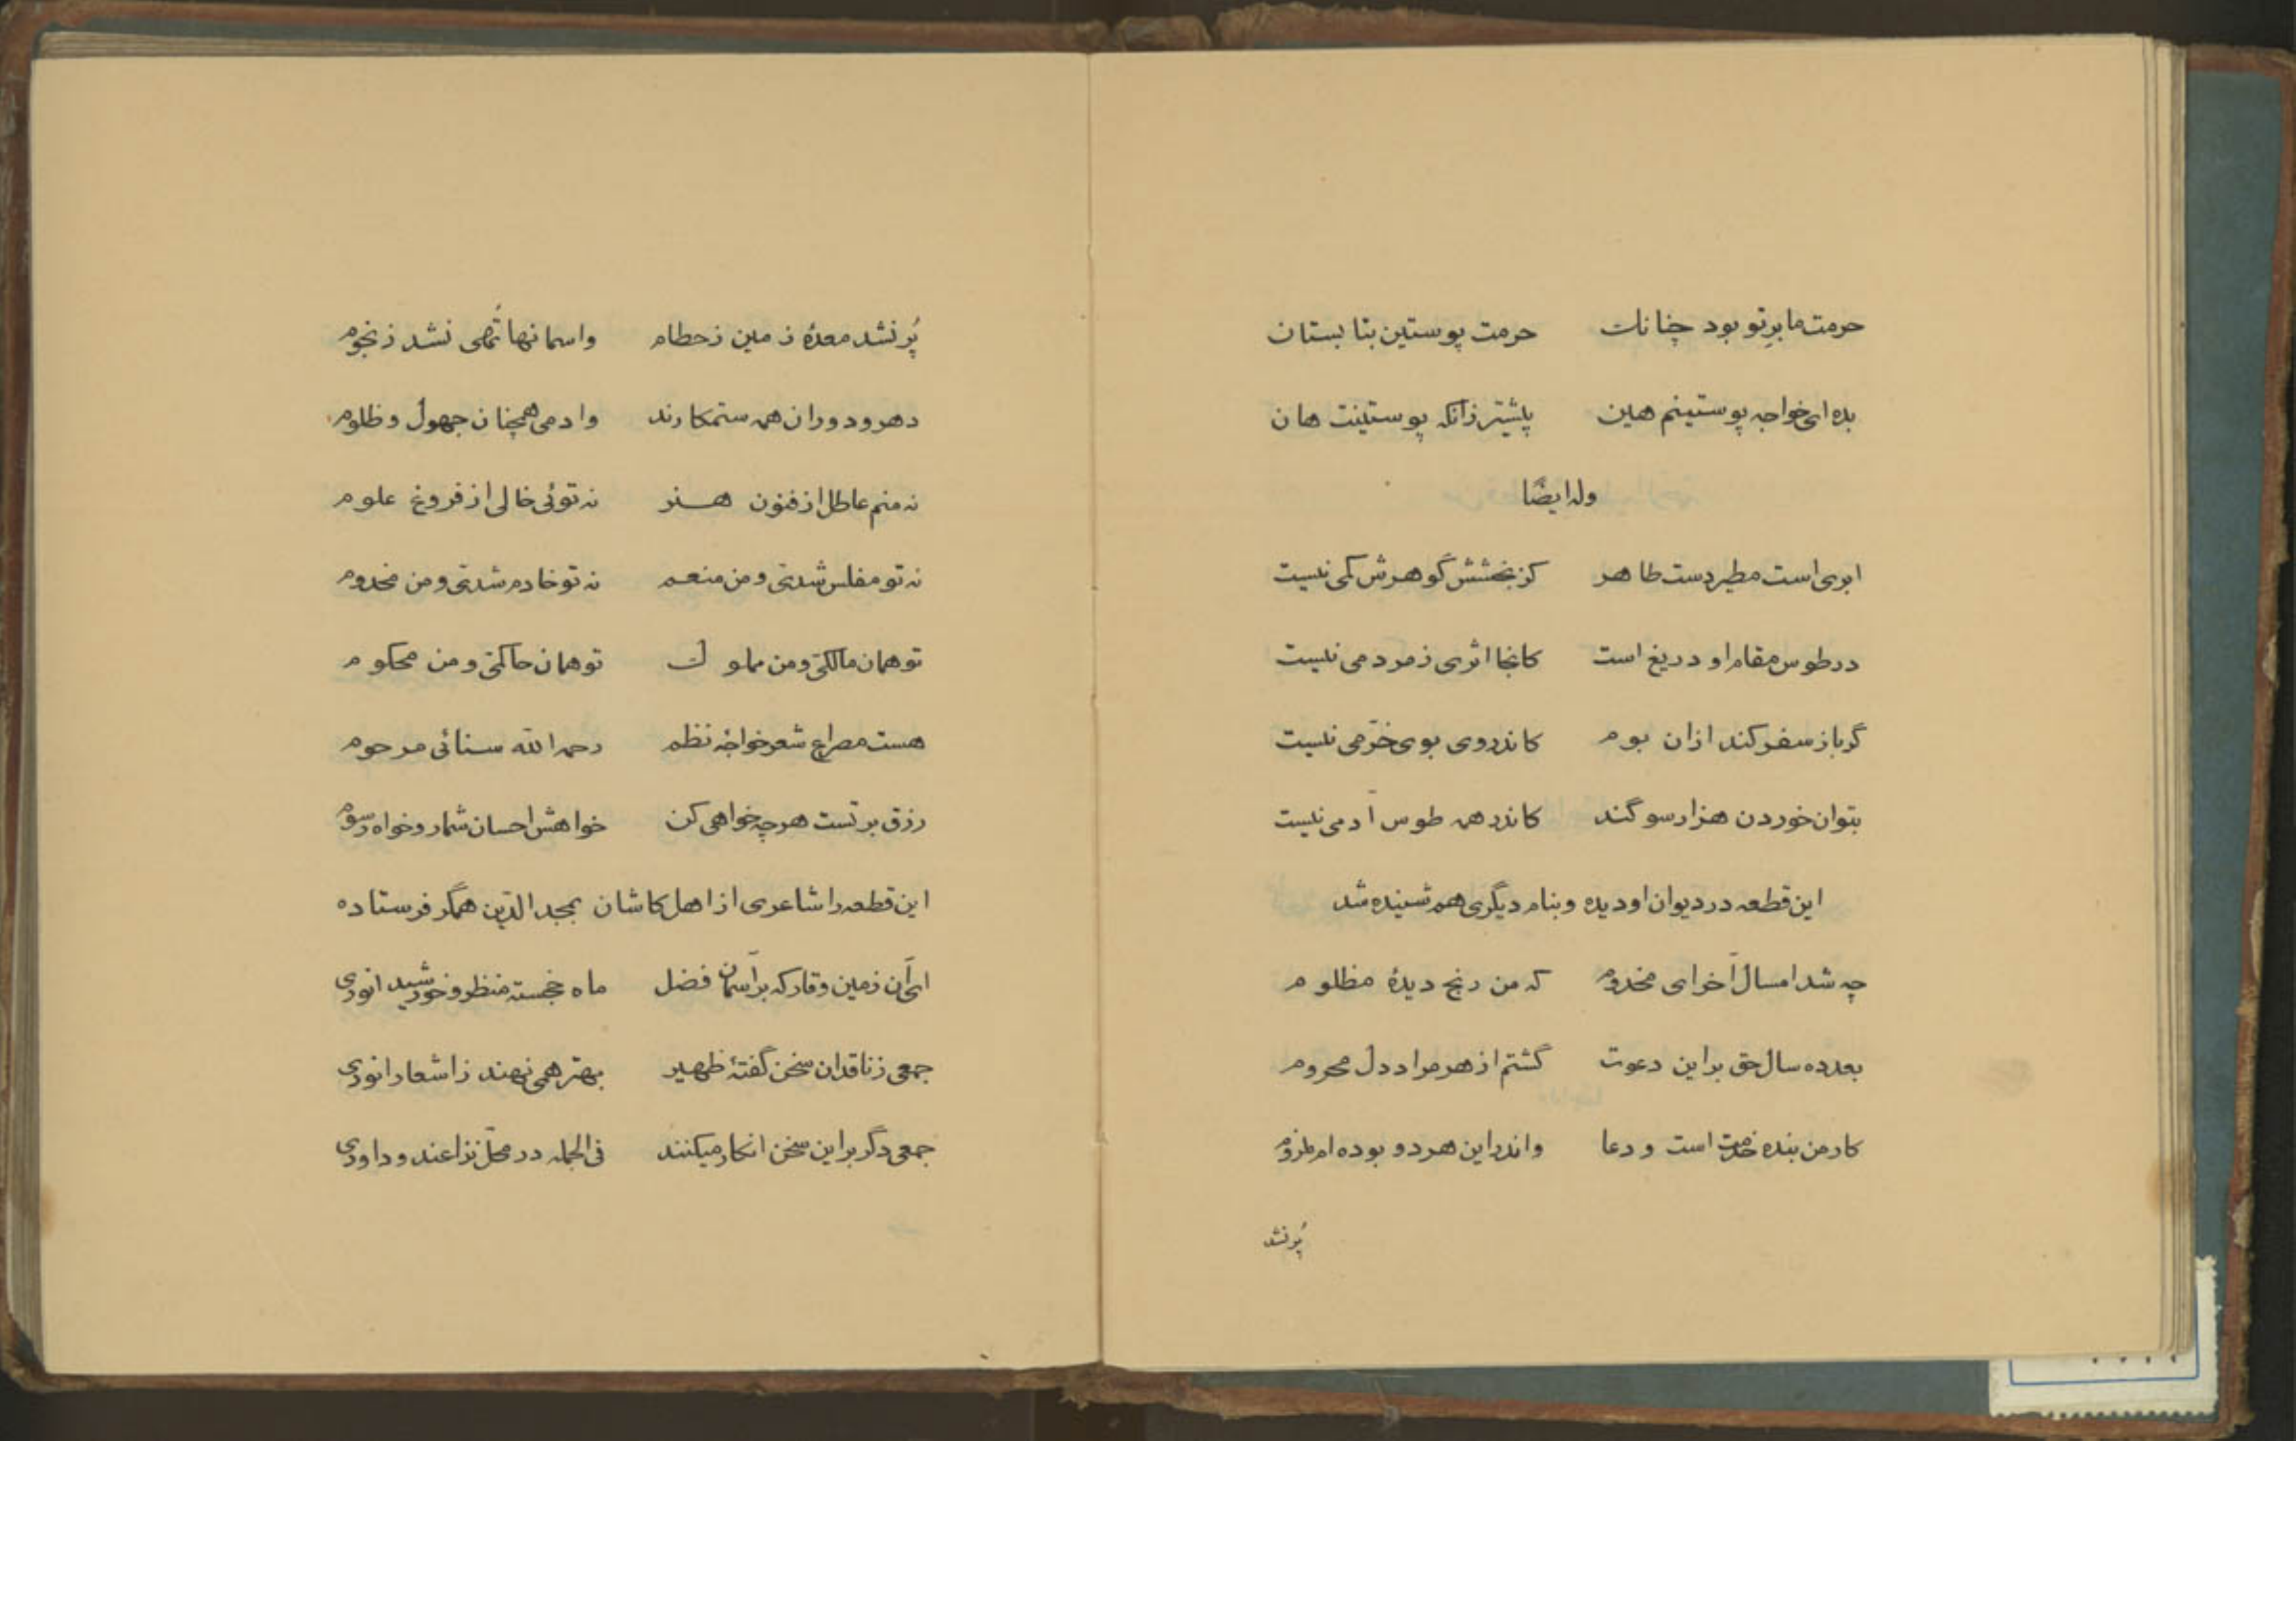 حرمت ما برِ تو بود چنانک حرمت پوستین بتابستان
بده ای خواجه پوستینم هین پیشتر زانکه پوستینت هان
وله ایضًا
ابری است مطیر دست طاهر کز بخشش گوهرش کمی نیست
در طوس مقام او دریغ است کانجا اثری ز مردمی نیست
گر باز سفر کند ازان بوم کاندروی بوی خرّمی نیست
بتوان خوردن هزار سوگند کاندر همه طوس آدمی نیست
این قطعه در دیوان او دیده و بنام دیگری هم شنیده شد
چه شد امسال آخر ای مخدوم که من رنج دیدهٔ مظلوم
بعد ده سال حق براین دعوت گشتم از هر مراد دل محروم
کار من بنده خدمت است و دعا واندراین هر دو بوده ام ملزوم
پُر نشد
پُر نشد معدهٔ زمین ز حطام واسمانها تُهی نشد ز نجوم
دهر و دوران همه ستمکارند وادمی همچنان جهول و ظلوم
نه منم عاطل از فنون هنر نه توئی خالی از فروغ علوم
نه تو مفلس شدی و من منعم نه تو خادم شدی و من مخدوم
تو همان مالکی و من مملوک تو همان حاکمی و من محکوم
هست مصراع شعر خواجهٔ نظم رحمه الله سنائی مرحوم
رزق بر تست هر چه خواهی کن خواهش احسان شمار و خواه رسوم
این قطعه را شاعری از اهل کاشان بمجد الدّین همگر فرستاده
ای آن زمین وقار که بر آسمان فضل ماه خجسته منظر و خورشید انوری
جمعی ز ناقدان سخن گفتهٔ ظهیر بهتر همی نهند ز اشعار انوری
جمعی دگر براین سخن انکار میکنند فی الجمله در محلّ نزاعند و داوری